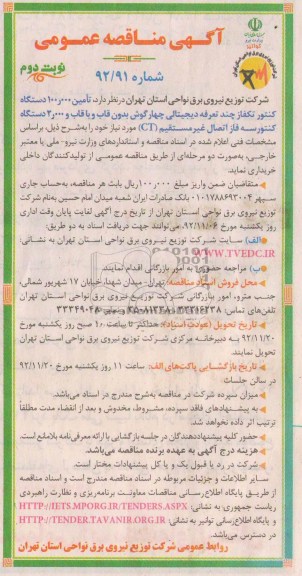 آگهی مناقصه عمومی
نوبت دوم
شماره ۹۲/۹۱
شرکت توزیع نیروی برق نواحی استان تهران درنظر دارد، تأمین ۱۰۰٫۰۰۰ دستگاه
کنتور تکفاز چند تعرفه دیجیتالی چهارگوش بدون قاب و با قاب و ۳٫۰۰۰ دستگاه
کنتور سه فاز اتصال غیرمستقیم (CT) مورد نیاز خود را به‌شرح ذیل، براساس
مشخصات فنی اعلام شده در اسناد مناقصه و استانداردهای وزارت نیرو- ملی یا معتبر
خارجی، به‌صورت دو مرحله‌ای از طریق مناقصه عمومی از تولیدکنندگان داخلی
خریداری نماید.
متقاضیان ضمن واریز مبلغ ۱۰۰٫۰۰۰ ریال بابت هر مناقصه، به‌حساب جاری
سپهر ۰۱۰۱۷۸۸۶۹۳۰۰۴ بانک صادرات ایران شعبه میدان امام حسین به‌نام شرکت
توزیع نیروی برق نواحی استان تهران از تاریخ درج آگهی لغایت پایان وقت اداری
روز یکشنبه مورخ ۹۲/۱۱/۰۶، می‌توانند جهت دریافت اسناد به دو طریق:
الف) سایت شرکت توزیع نیروی برق نواحی استان تهران به نشانی:
WWW.TVEDC.IR
ب) مراجعه حضوری به امور بازرگانی اقدام نمایند.
محل فروش اسناد مناقصه: تهران- میدان شهدا- خیابان ۱۷ شهریور شمالی
جنب مترو، امور بازرگانی شرکت توزیع نیروی برق نواحی استان تهران
تلفن‌های تماس:
تاریخ تحویل (عودت اسناد): حداکثر تا ساعت ۱۰ صبح روز یکشنبه مورخ
۹۲/۱۱/۲۰ به دبیرخانه مرکزی شرکت توزیع نیروی برق نواحی استان تهران
تحویل نمایند.
تاریخ بازگشایی پاکت‌های الف: ساعت ۱۱ روز یکشنبه مورخ ۹۲/۱۱/۲۰
در سالن جلسات
میزان سپرده شرکت در مناقصه به‌شرح مندرج در اسناد می‌باشد.
به پیشنهادهای فاقد سپرده، مشروط، مخدوش و بعد از انقضاء مدت مطلقاً
ترتیب اثر داده نخواهد شد.
حضور کلیه پیشنهاددهندگان در جلسه بازگشایی با ارائه معرفی‌نامه بلامانع است.
هزینه درج آگهی به عهده برنده مناقصه می‌باشد.
شرکت در رد یا قبول یک و یا کل پیشنهادات مختار است.
سایر اطلاعات و جزئیات مربوطه در اسناد مناقصه مندرج است و اسناد مناقصه
از طریق پایگاه اطلاع‌رسانی مناقصات معاونت برنامه‌ریزی و نظارت راهبردی
ریاست جمهوری به نشانی: HTTP://IETS.MPORG.IR/TENDERS.ASPX
و پایگاه اطلاع‌رسانی توانیر به نشانی: HTTP://TENDER.TAVANIR.ORG.IR
در دسترس می‌باشد.
روابط عمومی شرکت توزیع نیروی برق نواحی استان تهران